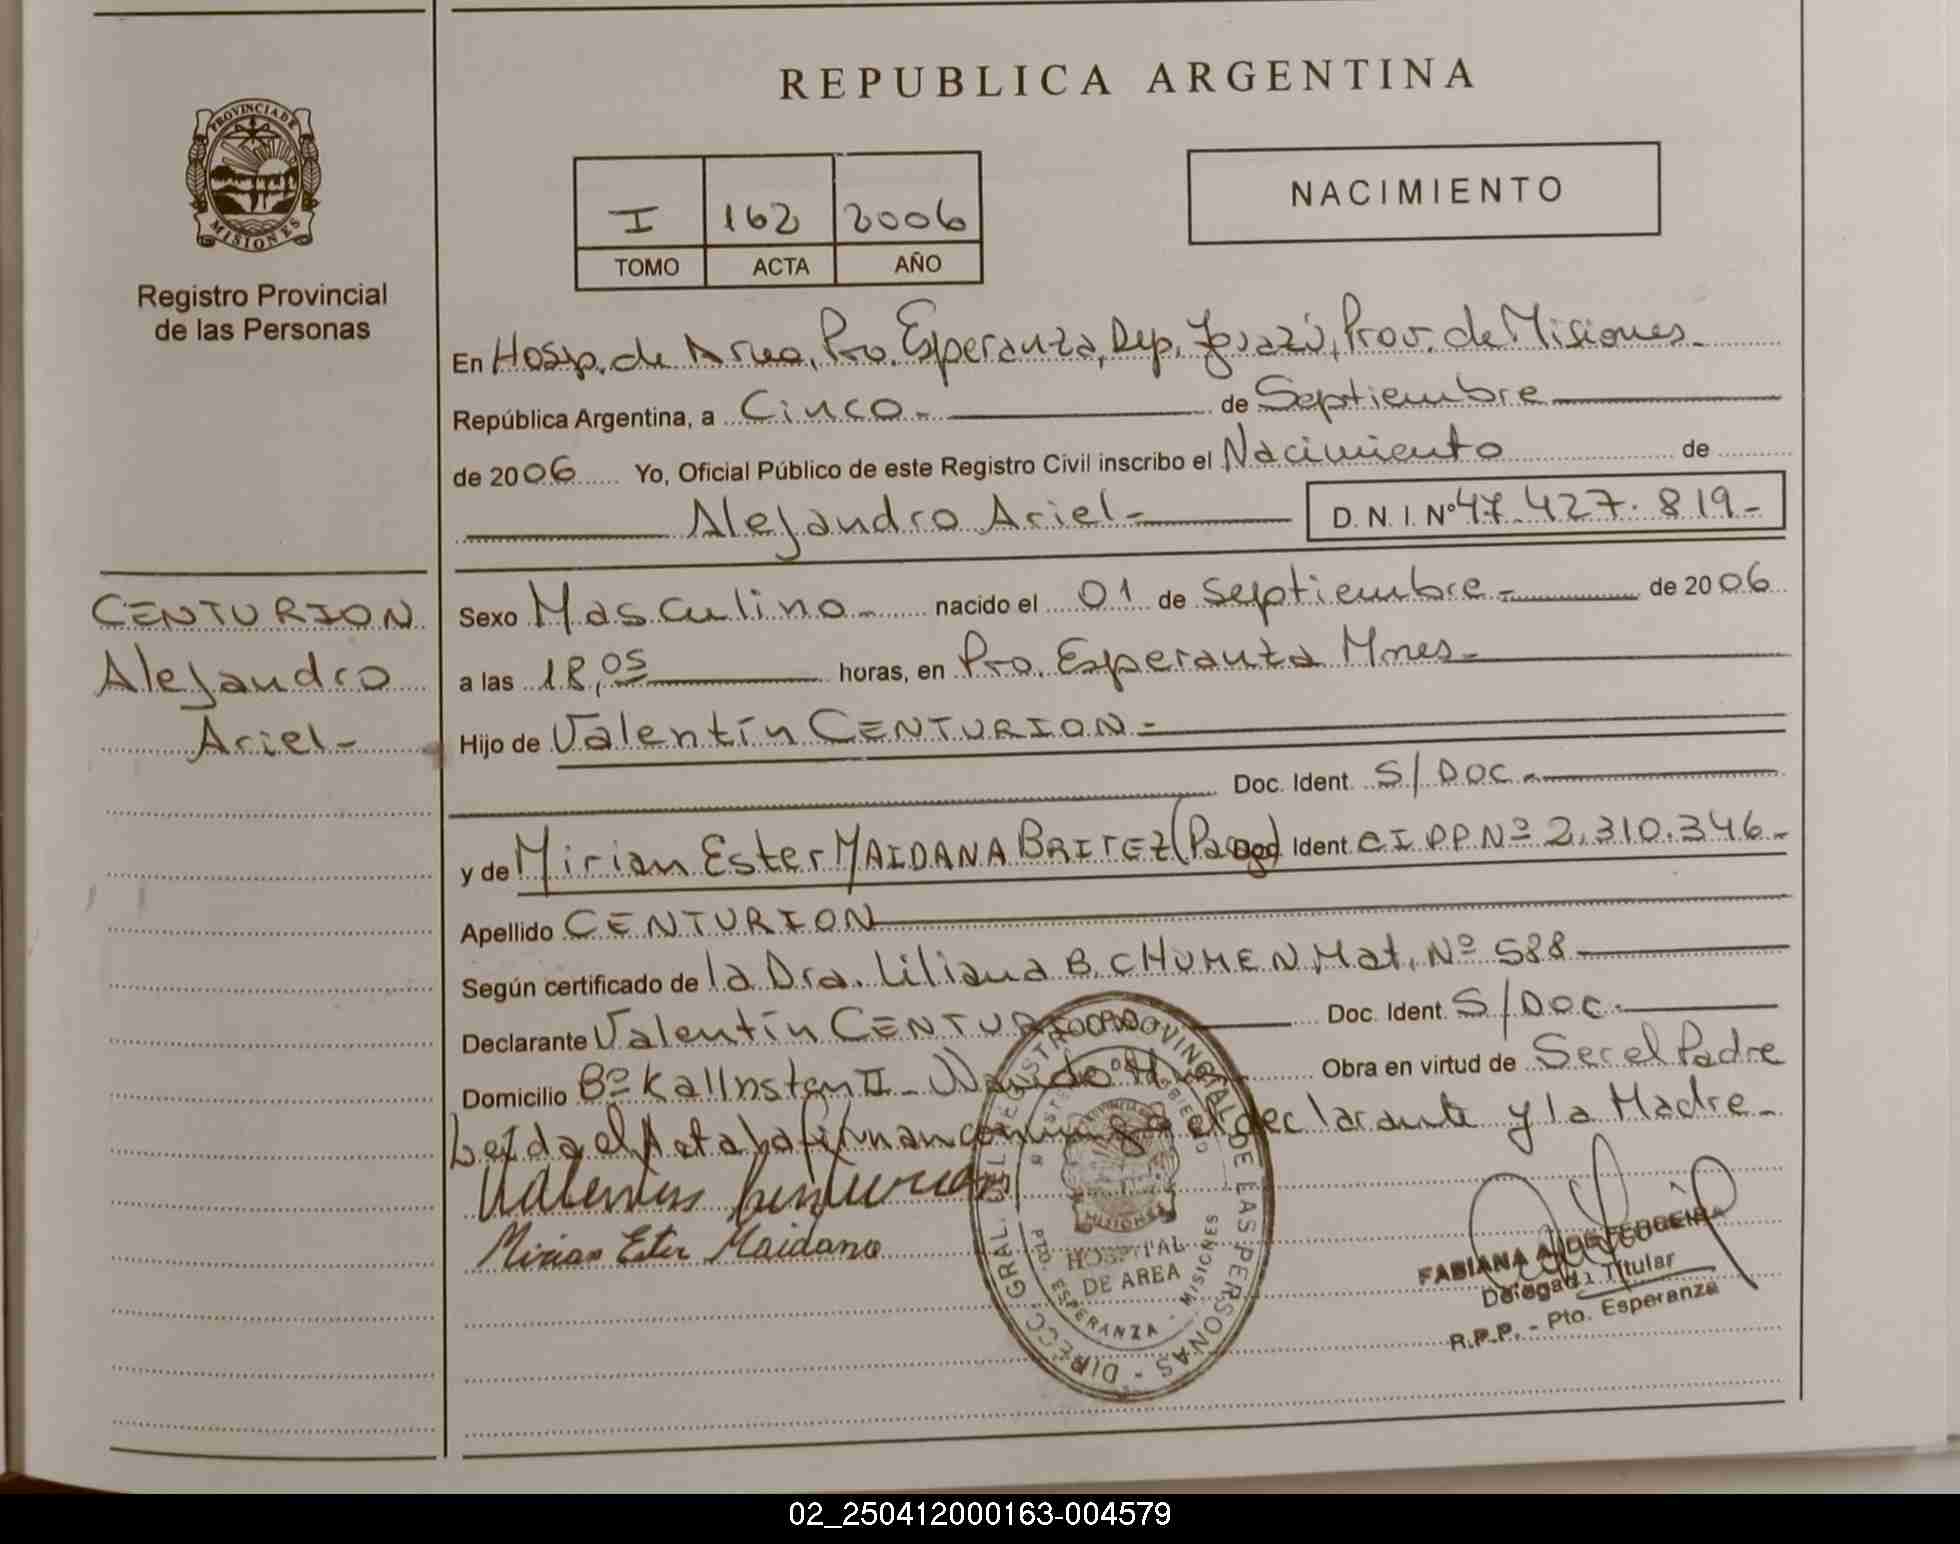 REPUBLICA ARGENTINA
PROVINCIA DE
MISIONES
Registro Provincial
de las Personas
I 162 2006
TOMO ACTA AÑO
NACIMIENTO
En Hosp. de Area, Pto. Esperanza, Dep. Iguazú, Prov. de Misiones.
República Argentina, a Cinco.- de Septiembre
de 2006 Yo, Oficial Público de este Registro Civil inscribo el Nacimiento de
Alejandro Ariel- D.N.I. Nº 47.427.819-
CENTURION
Alejandro
Ariel-
Sexo Masculino- nacido el 01 de Septiembre- de 2006
a las 18,05 horas, en Pto. Esperanza Mnes-
Hijo de Valentín CENTURION-
Doc. Ident. S/DOC.
y de Mirian Ester MAIDANA BRITEZ Doc. Ident. CI PP Nº 2.310.346-
Apellido CENTURION
Según certificado de la Dra. Liliana B. CHUMEN Mat. Nº 588
Declarante Valentín CENTURION Doc. Ident. S/DOC.
Domicilio Bº Kallnsten II- Obra en virtud de Ser el Padre
Leída el Acta la firman conmigo el declarante y la Madre-
Mirian Ester Maidana
DIRECC. GRAL. DEL REGISTRO PROVINCIAL DE LAS PERSONAS -
MISIONES
HOSPITAL
DE AREA
ESPERANZA - MISIONES
FABIANA A. DE FERREIRA
Delegada Titular
R.P.P. - Pto. Esperanza
02_250412000163-004579